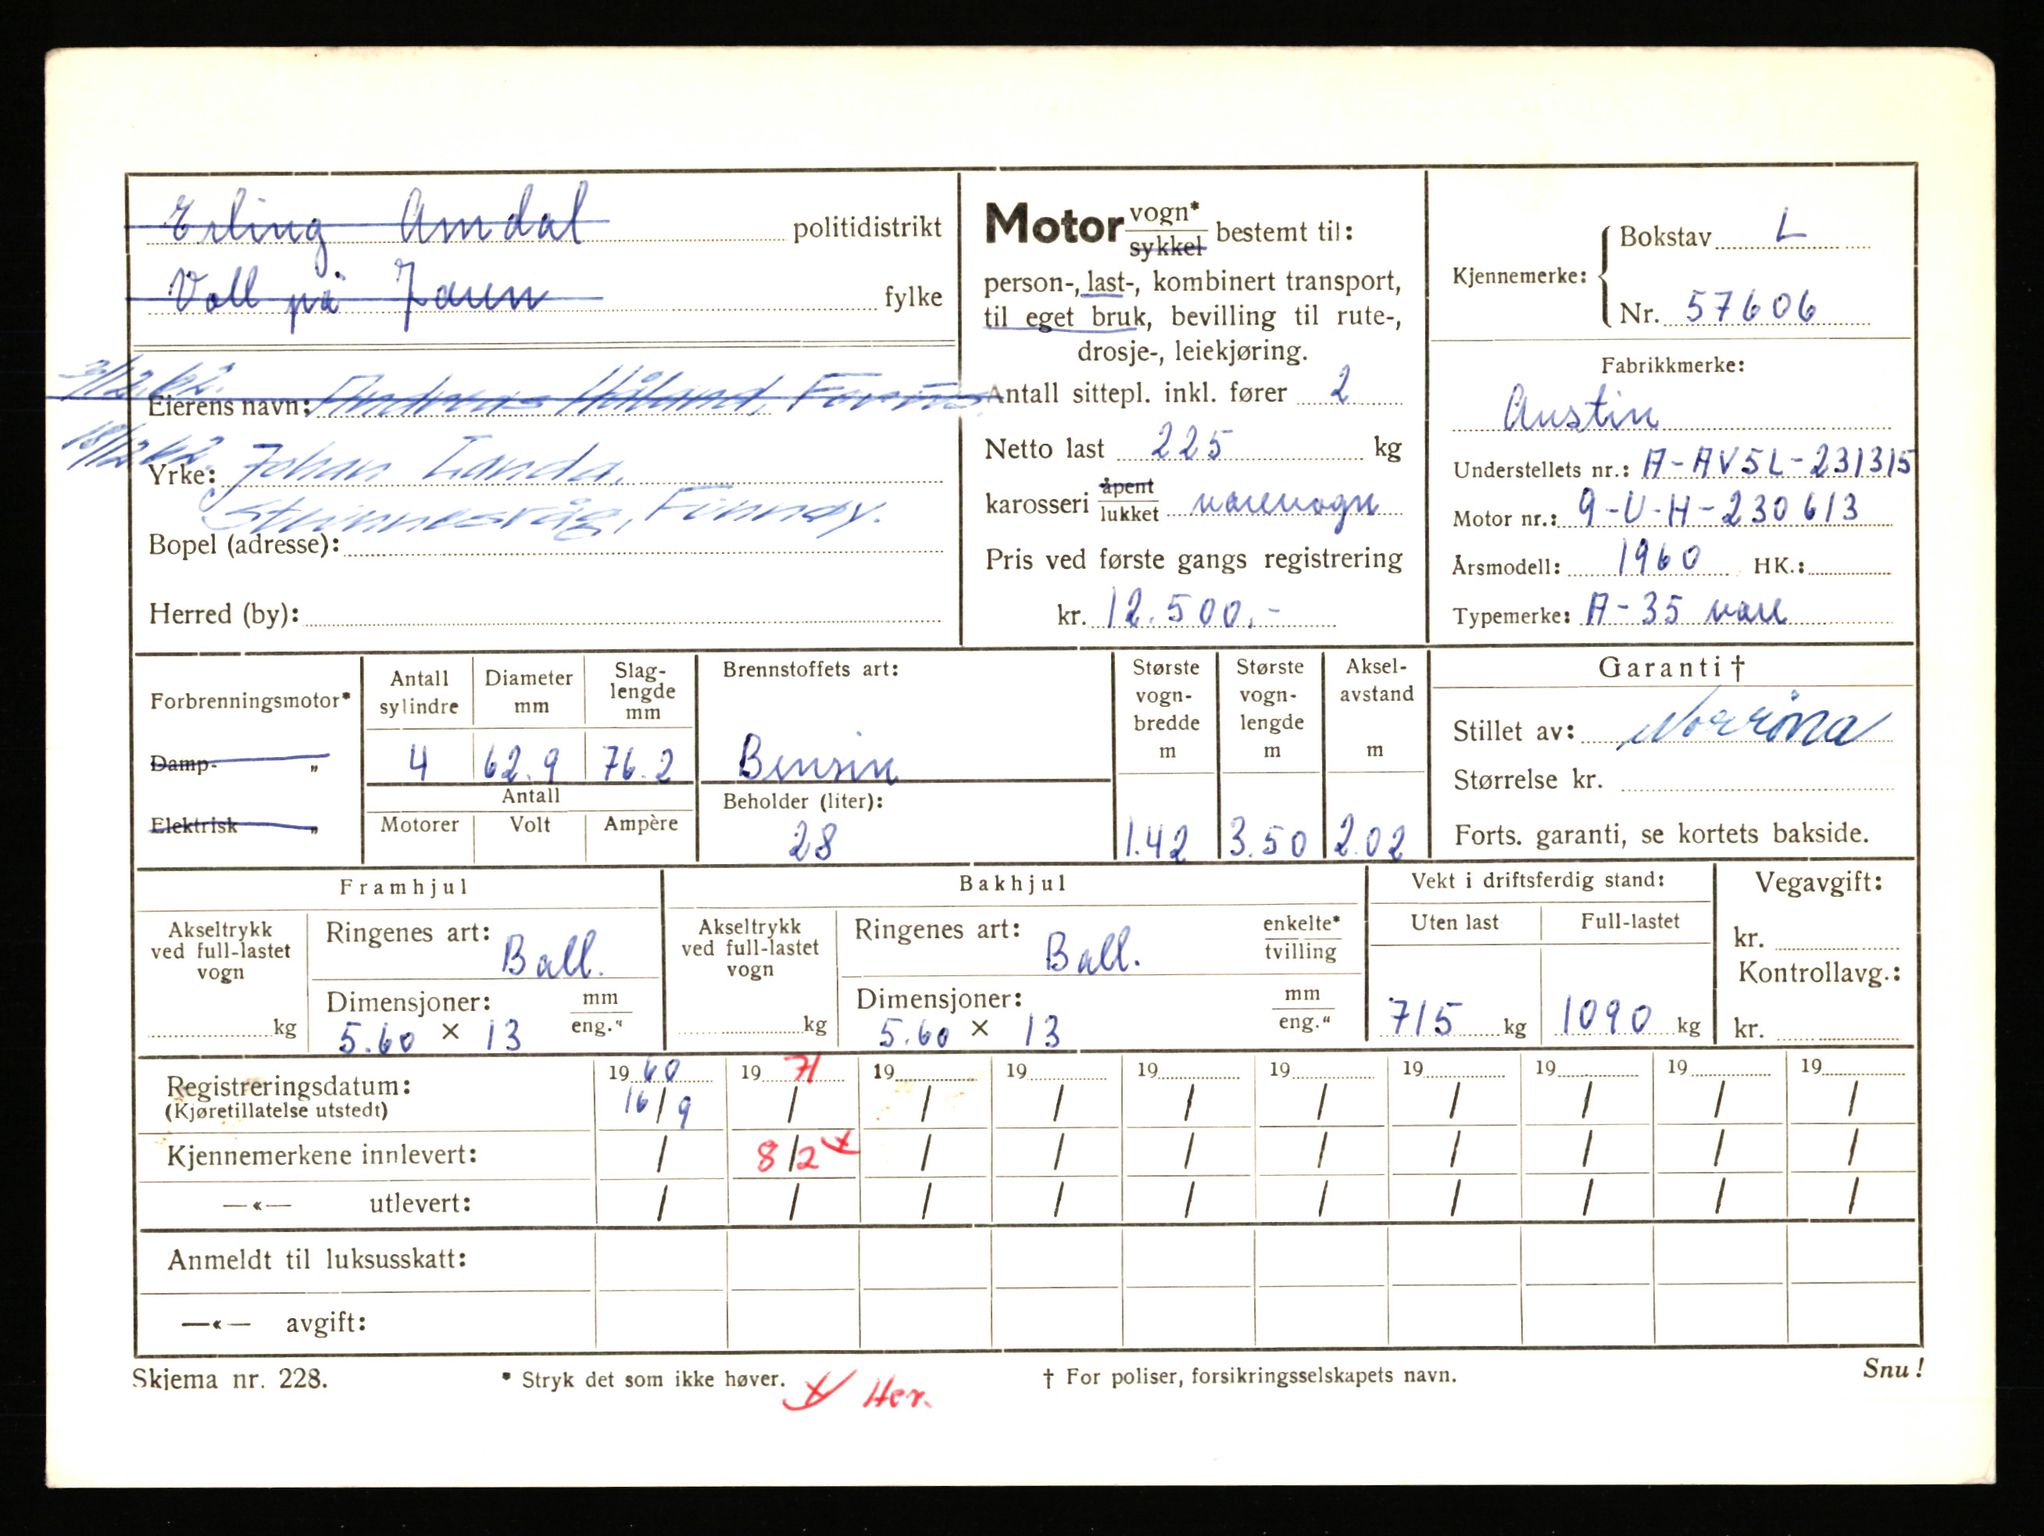 Erling Amdal politidistrikt
Voll på Jæren fylke
3/12.62.
Eierens navn: Andreas Håland,
18/12 62.
Yrke: Johan Landa,
Finnøy.
Bopel (adresse):
Herred (by):
Motor vogn* sykkel bestemt til:
person-, last-, kombinert transport,
til eget bruk, bevilling til rute-,
drosje-, leiekjøring.
Antall sittepl. inkl. fører 2
Netto last 225 kg
karosseri åpent lukket varevogn
Pris ved første gangs registrering
kr. 12.500,-
Kjennemerke: Bokstav L
Nr. 57606
Fabrikkmerke:
Austin
Understellets nr.: A-AV5L-231315
Motor nr.: 9-U-H-230613
Årsmodell: 1960 HK.:
Typemerke: A-35 vare
Forbrenningsmotor*
Damp- „
Elektrisk „
Antall sylindre 4
Diameter mm 62.9
Slaglengde mm 76.2
Antall
Motorer Volt Ampère
Brennstoffets art:
Bensin
Beholder (liter):
28
Største vognbredde m 1.42
Største vognlengde m 3.50
Akselavstand m 2.02
Garanti †
Stillet av: Norrøna
Størrelse kr.
Forts. garanti, se kortets bakside.
Framhjul
Akseltrykk ved full-lastet vogn kg
Ringenes art: Ball.
Dimensjoner: mm eng."
5.60 × 13
Bakhjul
Akseltrykk ved full-lastet vogn kg
Ringenes art: Ball. enkelte* tvilling
Dimensjoner: mm eng."
5.60 × 13
Vekt i driftsferdig stand:
Uten last Full-lastet
715 kg 1090 kg
Vegavgift:
kr.
Kontrollavg.:
kr.
Registreringsdatum: 1960 1971 19 19 19 19 19 19 19 19
(Kjøretillatelse utstedt) 16/9 / / / / / / / / /
Kjennemerkene innlevert: / 8/2 x / / / / / / / /
—«— utlevert: / / / / / / / / / /
Anmeldt til luksusskatt:
—«— avgift:
Skjema nr. 228.
* Stryk det som ikke høver.
x Her.
† For poliser, forsikringsselskapets navn.
Snu!